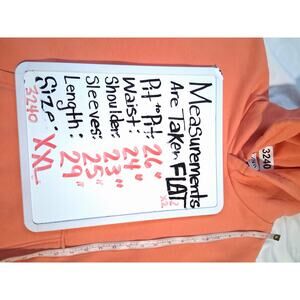 Measurements
Are Taken FLAT
x2
Pit to Pit: 26"
Waist: 24"
Shoulder: 23"
Sleeves: 25"
Length: 29"
Size: XXL
3240
3240